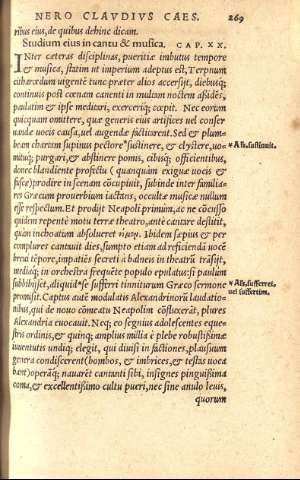 NERO CLAVDIVS CAES. 269
ribus eius, de quibus dehinc dicam.
Studium eius in cantu & musica. CAP. XX.
INter cæteras disciplinas, pueritiæ imbutus tempore
& musica, statim ut imperium adeptus est, Terpnum
citharœdum uigentē tunc præter alios accersijt, diebusq;
continuis post cœnam canenti in multam noctē assidēs,
paulatim & ipse meditari, exerceriq; cœpit. Nec eorum
quicquam omittere, quæ generis eius artifices uel conser
uandæ uocis causa, uel augendæ factitarent. Sed & plum-
beam chartam supinus pectore ᵛsustinere, & clystere, uo-
mituq; purgari, & abstinere pomis, cibisq; officientibus,
donec blandiente profectu (quanquam exiguæ uocis &
fuscæ) prodire in scenam cōcupiuit, subinde inter familia-
res Græcum prouerbium iactans, occultæ musicæ nullum
esse respectum. Et prodijt Neapoli primùm, ac ne cōcusso
quidem repentè motu terræ theatro, ante cantare destitit,
quàm inchoatum absolueret
Ibidem sæpius & per
complures cantauit dies, sumpto etiam ad reficiendā uocē
breui tēpore, impatiēs secreti à balneis in theatrū trāsijt,
mediaq; in orchestra frequēte populo epulatus: si paulùm
subbibisset, aliquid ᵛse sufferri tinniturum Græco sermone
promisit. Captus autē modulatis Alexandrinorū laudatio-
nibus, qui de nouo cōmeatu Neapolim cōfluxerāt, plures
Alexandria euocauit. Neq; eo segnius adolescentes eque-
stris ordinis, & quinq; amplius millia è plebe robustissimæ
iuuentutis undiq; elegit, qui diuisi in factiones, plausuum
genera condiscerent (bombos, & imbrices, & testas uoca
bant) operāq; nauarēt cantanti sibi, insignes pinguissima
coma, & excellentissimo cultu pueri, nec sine anulo leuis,
quorum
ᵛ Al. sustinuit.
ᵛ Al. sufferret,
uel suffertim.